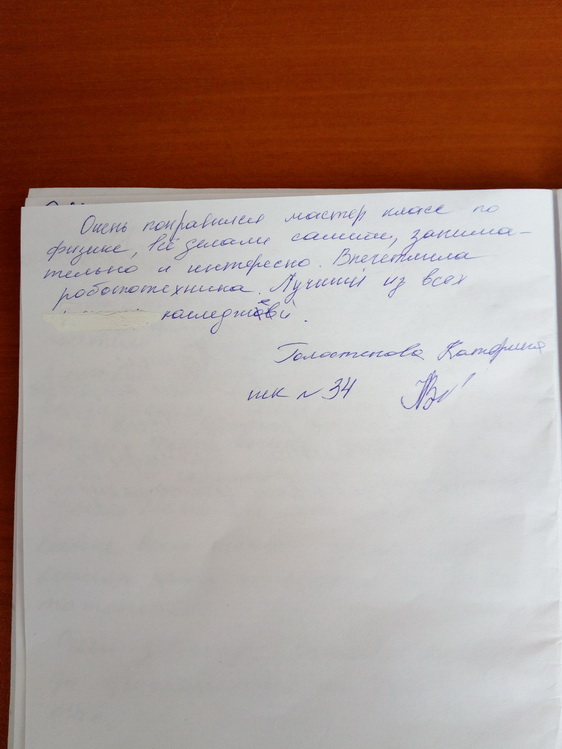 Очень понравился мастер класс по
физике, всё делали самими, занима-
тельно и интересно. Впечетлила
робототехника. Лучший из всех
колледжей.
Катерина
шк №34